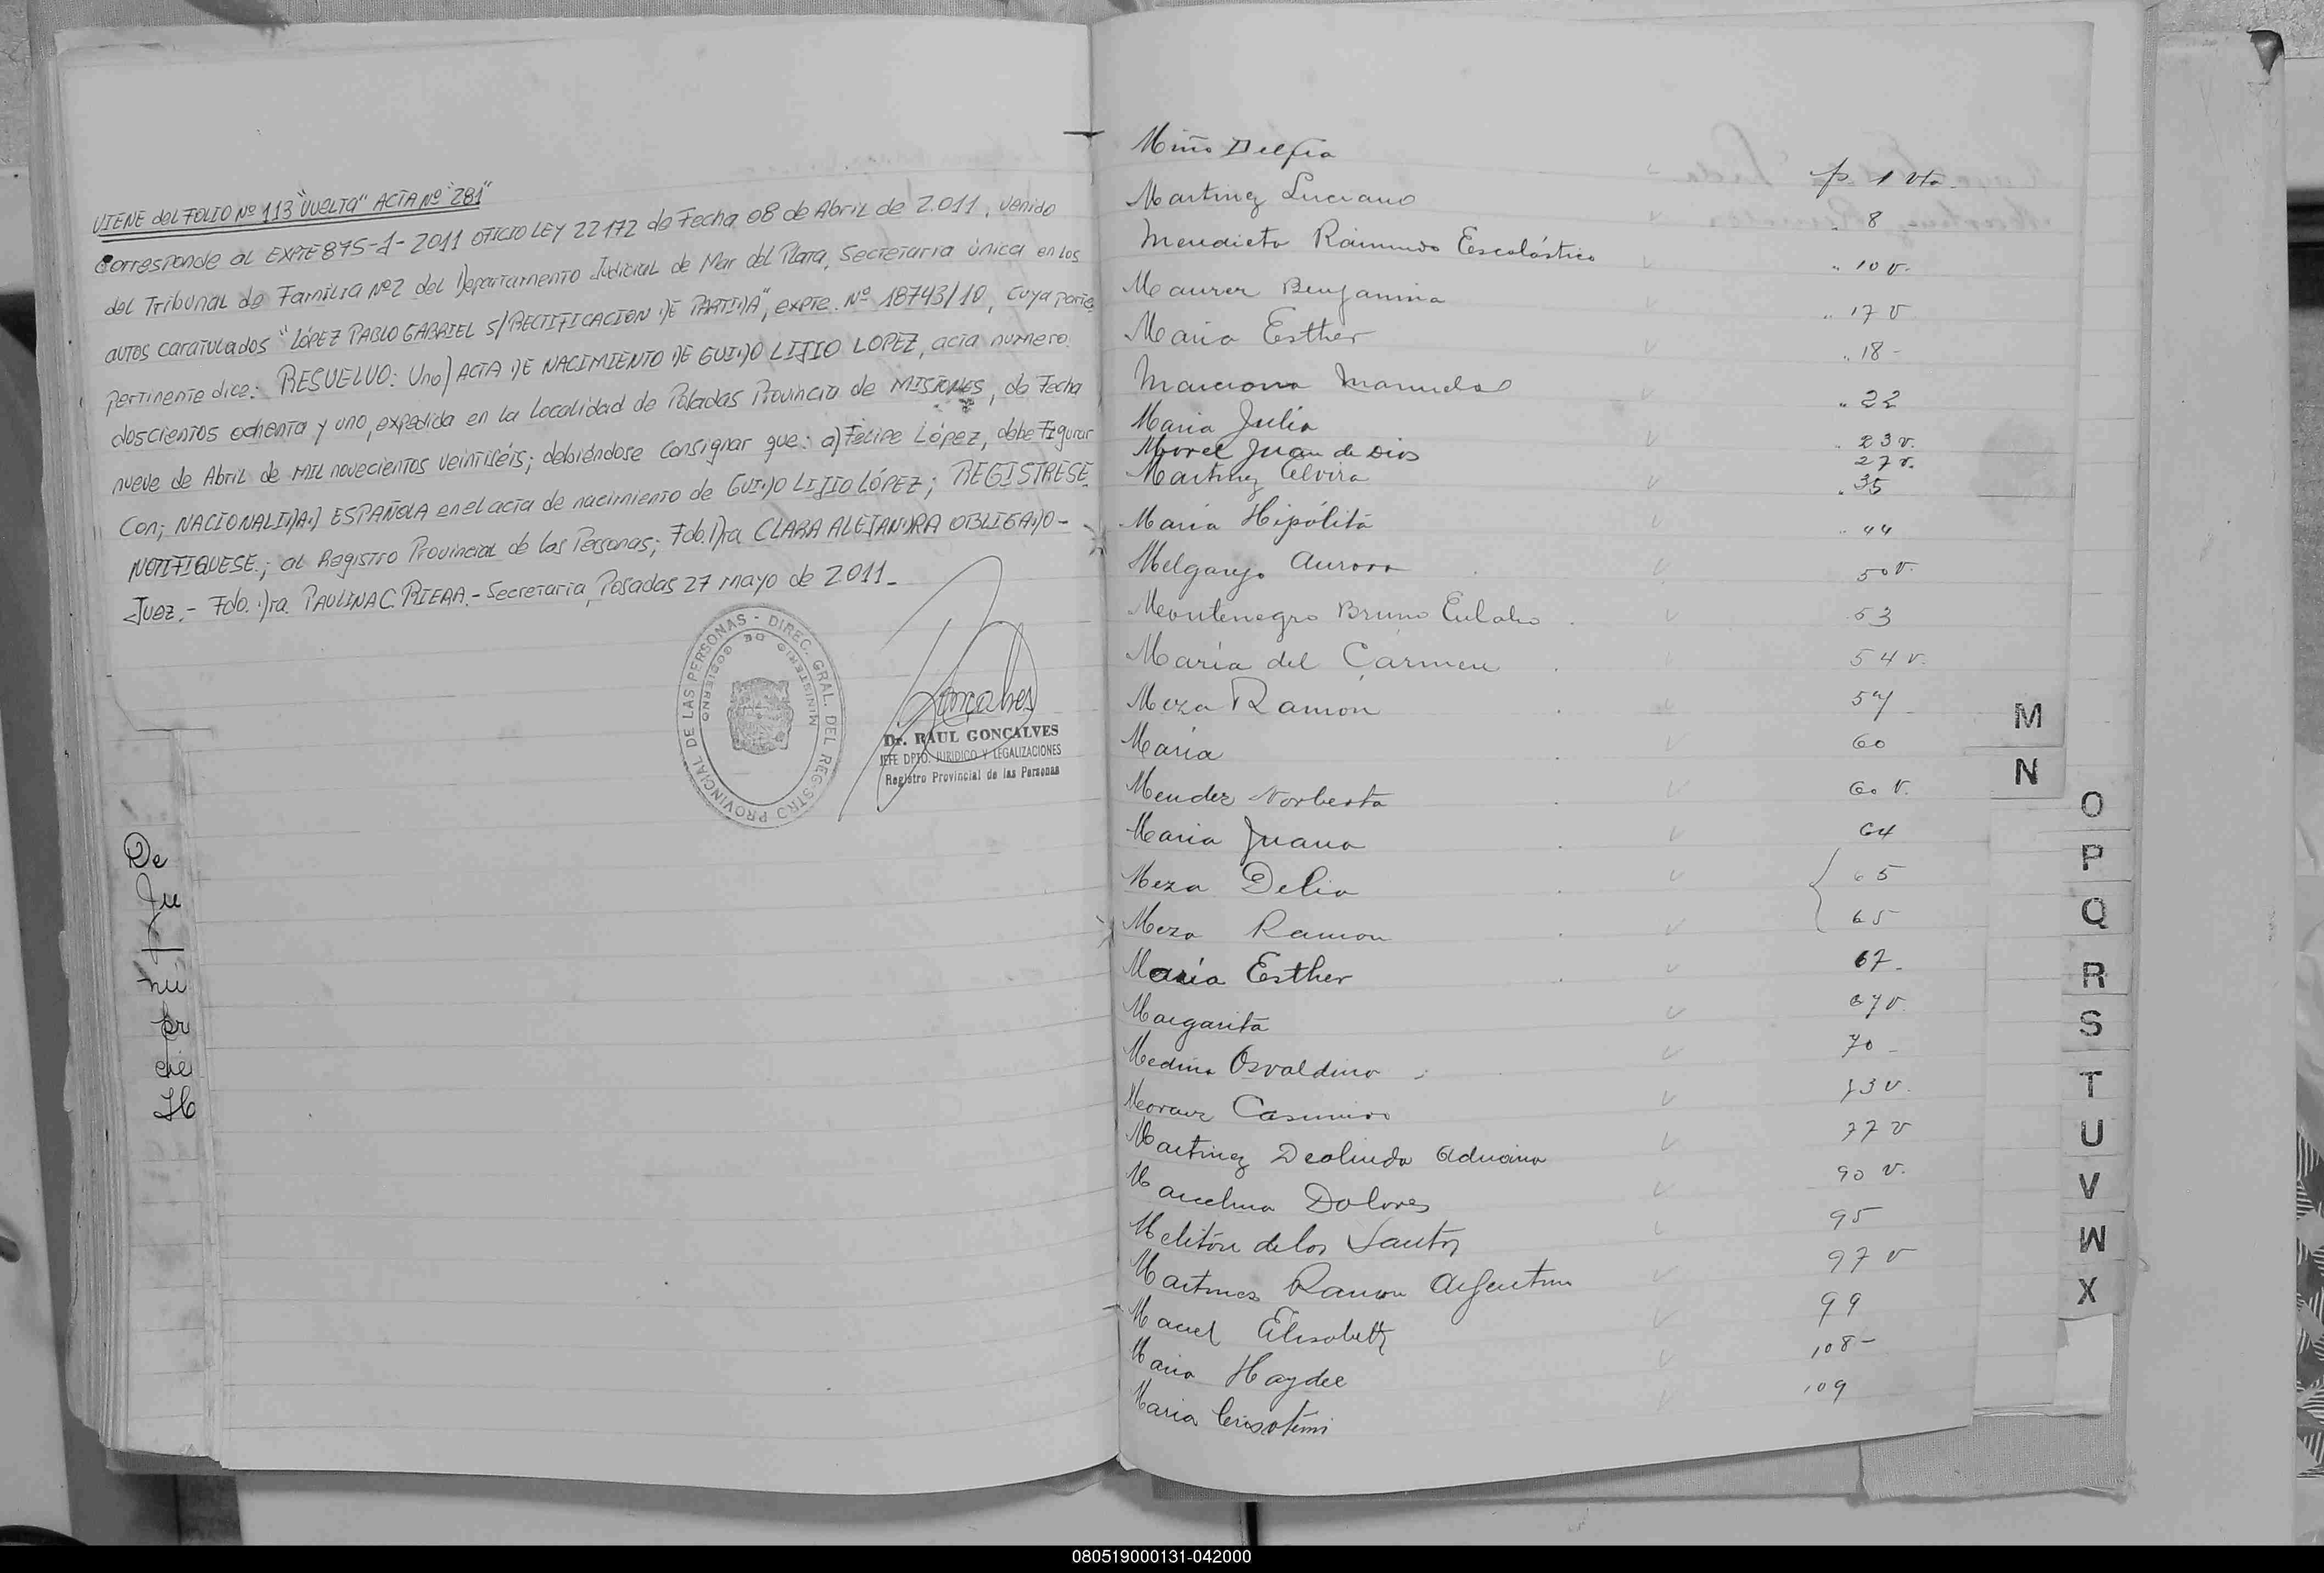 VIENE del FOLIO Nº 113 "VUELTA" ACTA Nº "281"
Corresponde al EXPTE 875-1-2011 OFICIO LEY 22172 de Fecha 08 de Abril de 2.011, venido
del Tribunal de Familia Nº2 del Departamento Judicial de Mar del Plata, Secretaria única en los
autos caratulados "LÓPEZ PABLO GABRIEL S/RECTIFICACION DE PARTIDA", expte. Nº 18743/10, cuya parte
pertinente dice: RESUELVO: Uno) ACTA DE NACIMIENTO DE GUIDO LIJIO LOPEZ, acta numero
doscientos ochenta y uno, expedida en la localidad de Posadas Provincia de MISIONES, de Fecha
nueve de Abril de MIL novecientos veintiséis; debiéndose consignar que: a) Felipe López, debe Figurar
con; NACIONALIDAD ESPAÑOLA en el acta de nacimiento de GUIDO LIJIO LÓPEZ; REGISTRESE.
NOTIFIQUESE.; al Registro Provincial de las Personas; Fdo. Dra CLARA ALEJANDRA OBLIGADO-
Juez.- Fdo. Dra. PAULINA C. RIERA.- Secretaria, Posadas 27 mayo de 2011.-
DIREC. GRAL. DEL REGISTRO PROVINCIAL DE LAS PERSONAS -
MINISTERIO DE GOBIERNO
Dr. RAUL GONCALVES
JEFE DPTO. JURIDICO Y LEGALIZACIONES
Registro Provincial de las Personas
De
Ju
nú
pr
che
H
Miño Delfia f. 1 vta.
Martinez Luciano " 8
Mendieta Raimundo Escolástico " 10 v.
Maurer Benjamina " 17 v
Maria Esther " 18 -
Marciana Manuela " 22
Maria Julia " 23 v.
Morel Juan de Dios 27 v.
Martinez Elvira " 35
Maria Hipólita " 44
Melgarejo Aurora 50 v.
Montenegro Bruno Eulalio 53
Maria del Carmen 54 v.
Meza Ramon 57 -
Maria 60
Mendez Norberta 60 v.
Maria Juana 64
Meza Delia 65
Meza Ramon 65
Maria Esther 67 -
Margarita 67 v
Medina Osvaldina 70 -
Casimiro 73 v.
Martinez Deolinda Adriana 77 v
Marcelina Dolores 90 v.
Melitón de los Santos 95
Martines Ramon Argentino 97 v
Maciel Elisabeth 99
Maria Haydee 108 -
Maria Crisotemi 109
M
N
O
P
Q
R
S
T
U
V
W
X
080519000131-042000